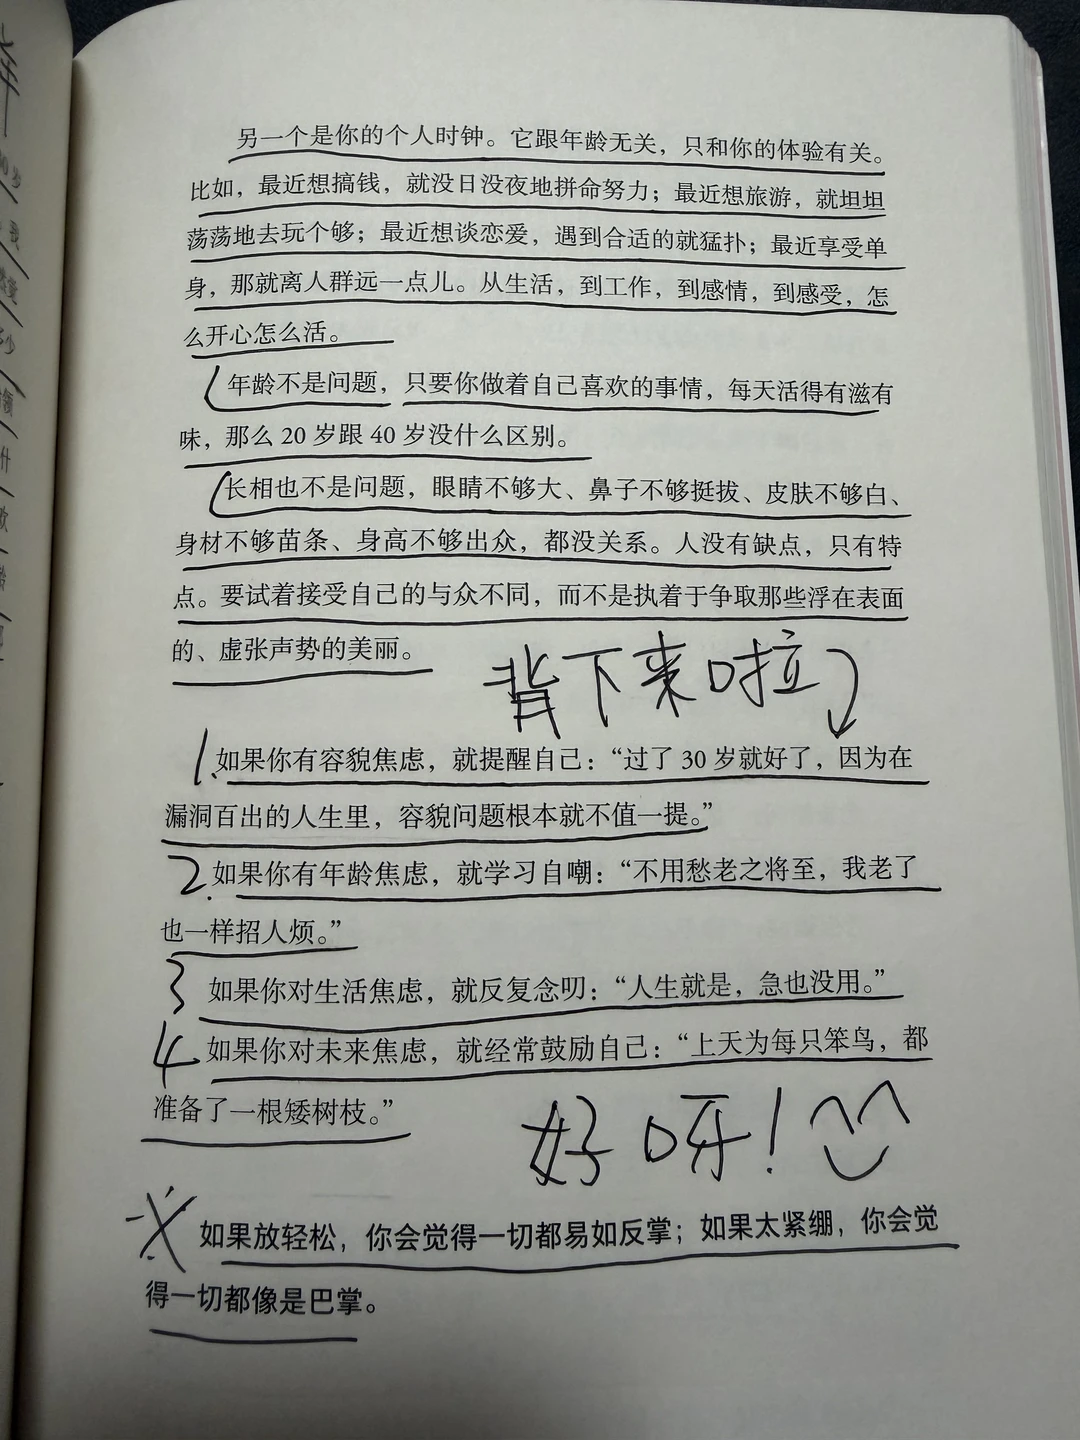 另一个是你的个人时钟。它跟年龄无关，只和你的体验有关。
比如，最近想搞钱，就没日没夜地拼命努力；最近想旅游，就坦坦
荡荡地去玩个够；最近想谈恋爱，遇到合适的就猛扑；最近享受单
身，那就离人群远一点儿。从生活，到工作，到感情，到感受，怎
么开心怎么活。
年龄不是问题，只要你做着自己喜欢的事情，每天活得有滋有
味，那么 20 岁跟 40 岁没什么区别。
长相也不是问题，眼睛不够大、鼻子不够挺拔、皮肤不够白、
身材不够苗条、身高不够出众，都没关系。人没有缺点，只有特
点。要试着接受自己的与众不同，而不是执着于争取那些浮在表面
的、虚张声势的美丽。
背下来啦
1. 如果你有容貌焦虑，就提醒自己：“过了 30 岁就好了，因为在
漏洞百出的人生里，容貌问题根本就不值一提。”
2. 如果你有年龄焦虑，就学习自嘲：“不用愁老之将至，我老了
也一样招人烦。”
3 如果你对生活焦虑，就反复念叨：“人生就是，急也没用。”
4 如果你对未来焦虑，就经常鼓励自己：“上天为每只笨鸟，都
准备了一根矮树枝。”
好呀！
如果放轻松，你会觉得一切都易如反掌；如果太紧绷，你会觉
得一切都像是巴掌。
岁
我
觉
多少
领
什
歌
龄